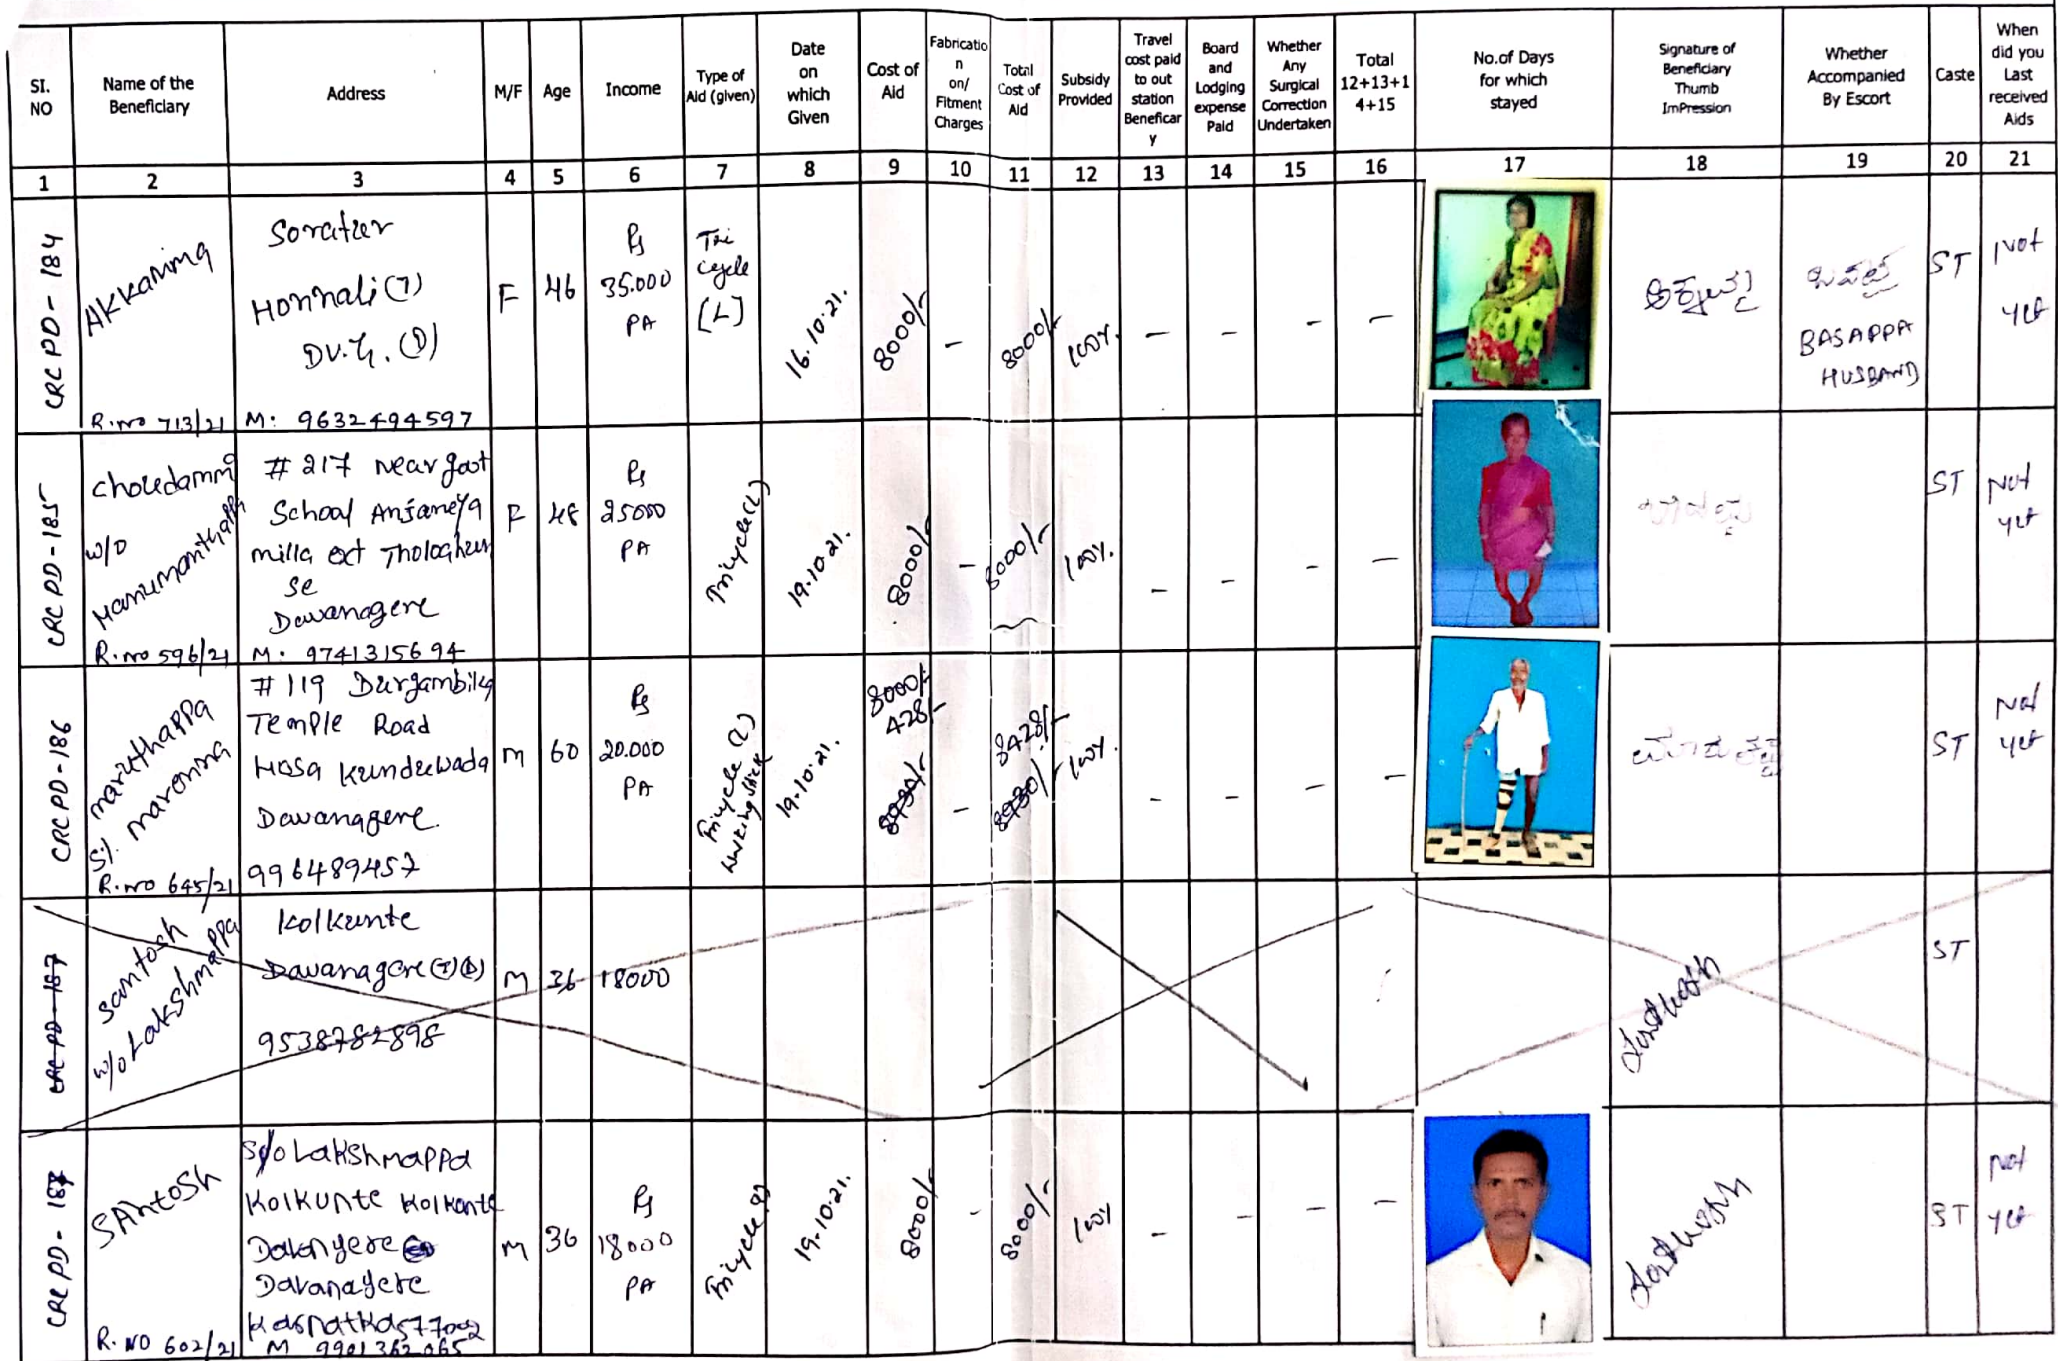 SI. NO
Name of the Beneficiary
Address
M/F
Age
Income
Type of Aid (given)
Date on which Given
Cost of Aid
Fabricatio n on/ Fitment Charges
Total Cost of Aid
Subsidy Provided
Travel cost paid to out station Beneficar y
Board and Lodging expense Paid
Whether Any Surgical Correction Undertaken
Total 12+13+1 4+15
No.of Days for which stayed
Signature of Beneficiary Thumb ImPression
Whether Accompanied By Escort
Caste
When did you Last received Aids
1 2 3 4 5 6 7 8 9 10 11 12 13 14 15 16 17 18 19 20 21
CRC PD - 184
AKKamma
R.no 713/21
Honnali (T)
DV.G. (D)
M: 9632494597
F
46
Rs
35.000
PA
Tri
cycle
[L]
16.10.21.
8000/-
-
8000/-
100%.
-
-
-
-
BASAPPA
HUSBAND
ST
Not
yet
CRC PD - 185
w/o
Hanumanthappa
R.no 596/21
# 217 near govt
School Anjaneya
milla ext
Davanagere
M: 9741315694
F
48
Rs
25000
PA
Tricycle (L)
19.10.21.
8000/-
-
8000/-
100%.
-
-
-
-
ST
Not
yet
CRC PD - 186
maruthappa
S/.
R.no 645/21
# 119 Durgambika
Temple Road
Hosa Kunduwada
Davanagere.
996489457
m
60
Rs
20.000
PA
Tricycle (L)
walking stick
19.10.21.
8000/-
428/-
8930/-
-
8428/-
8930/-
100%.
-
-
-
-
ಮಾರುತಪ್ಪ
ST
Not
yet
CRC PD - 187
santosh
w/o Lakshmappa
Kolkunte
Davanagere (T) (D)
9538782898
M
36
18000
ST
CRC PD - 187
SAntoSh
R. NO 602/21
S/o Lakshmappa
Kolkunte Kolkante
Davanayere
M 9901362065
M
36
Rs
18000
PA
19.10.21.
8000/-
-
8000/-
100%
-
-
-
-
ST
Not
yet